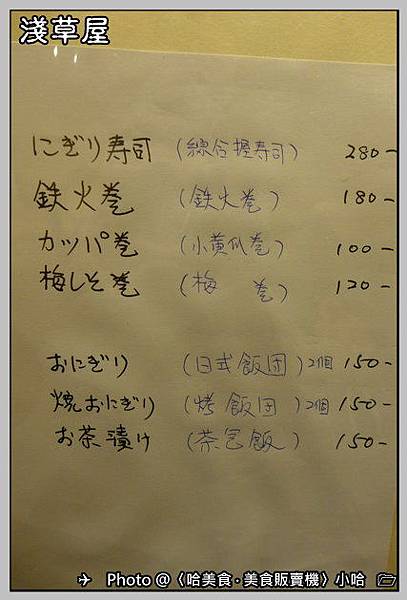 淺草屋
にぎり寿司 (綜合握寿司) 280-
鉄火巻 (鉄火巻) 180-
カッパ巻 (小黄瓜巻) 100-
梅しそ巻 (梅 巻) 120-
おにぎり (日式飯団) 2個 150-
焼おにぎり (烤飯団) 2個 150-
お茶漬け (茶泡飯) 150-
✈ Photo @〈哈美食·美食販賣機〉小哈